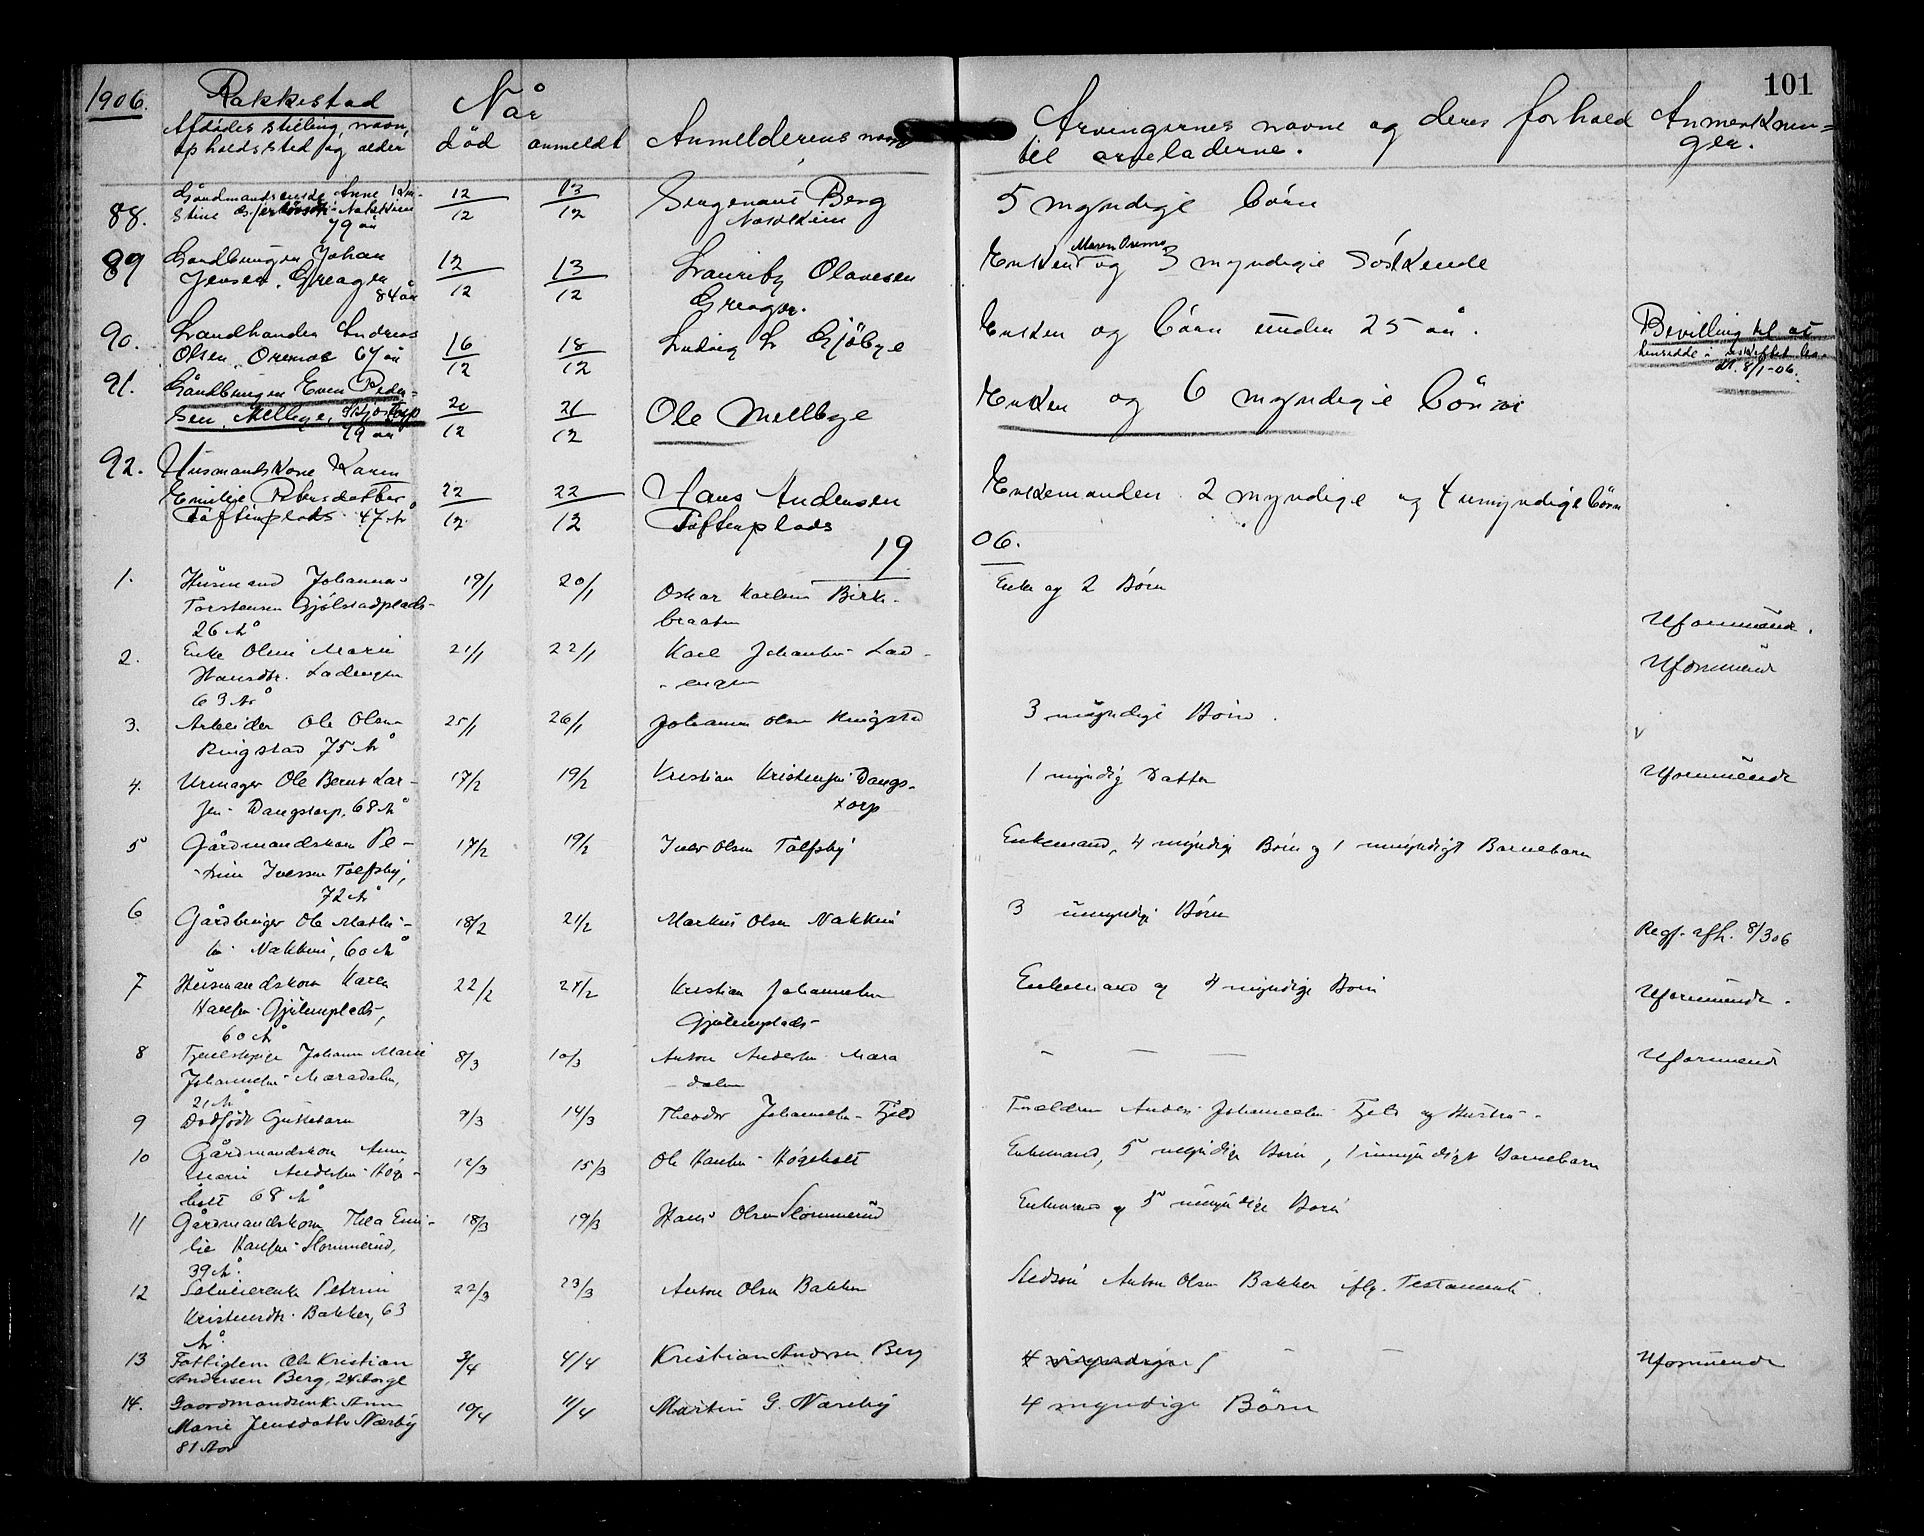 1906.
Rakkestad
Når
101
Afdødes stilling, navn,
opholdssted og alder
død
anmeldt
Anmelderens navn
Arvingernes navne og deres forhold
til arveladerne.
Anmerknin=
ger.
88.
Gårdmandsenke Anne Kri-
stine
Nakkim
79 år
12/12
13/12
Berg
5 myndige børn
89
Gårdbruger Johan
Jensen, Greager
84 år
12/12
13/12
Lauritz Olavesen
Greager.
Enken og 3 myndige Søskende
90.
Landhandler Andreas
Olsen, 67 år
16/12
18/12
Ludvig L. Gjøbye
Enken og børn under 25 år.
Bevilling til at
8/1-06.
91.
Gårdbruger Even Peder-
sen, Mellbye,
79 år
20/12
21/12
Ole Mellbye
Enken og 6 myndige børn
92.
Husmandskone Karen
Emilie Petersdatter
Toftenplads 47 År
22/12
22/12
Hans Andersen
Toftenplads
Enkemanden 2 myndige og 4 umyndige børn
19 06.
1.
Husmand Johannes
Torstensen Gjølstadplads-
26 År
19/1
20/1
Oskar Karlsen Birke-
braaten
Enke og 2 Børn
Uformuende.
2.
Enke Oline Marie
Hansdtr. Ladengen
63 År
21/1
22/1
Karl Johansen Lad-
engen
Uformuende
3.
Arbeider Ole Olsen
Ringstad 75 År
25/1
26/1
Johannes Olsen Ringstad
3 myndige Børn.
4.
Urmager Ole Bernt Lar-
sen Dangstorp, 68 År
17/2
19/2
Kristian Kristensen Dangs-
torp
1 myndig Datter
Uformuende
5
Gårdmandskone Pe-
trine Iversen Tolfsby,
72 År
17/2
19/2
Iver Olsen Tolfsby
Enkemand, 4 myndige Børn og 1 umyndigt Barnebarn
6
Gårdbruger Ole Mathi-
sen Nakkim, 60 År
18/2
21/2
Markus Olsen Nakkim
3 umyndige Børn
Regs. afh. 8/3 06
7
Husmandskone Karen
Hansen Gjølemplads,
60 År
22/2
24/2
Kristian Johannesen
Gjølemplads
Enkemand og 4 myndige Børn
Uformuende.
8
Tjenestepige Johanne Marie
Johannesen Mæradalen,
21 År
8/3
10/3
Anton Andersen Mæra
dalen
- - -
Uformuende
9
Dødfødt Guttebarn
9/3
14/3
Theodor Johannesen Fjeld
Forældrene Anders Johannesen Fjeld og Hustru
10
Gårdmandskone Anne
Marie Andersen Høge-
holt 68 År
12/3
15/3
Ole Hansen Høgeholt
Enkemand, 5 myndige Børn, 1 umyndigt Barnebarn
11
Gårdmandskone Thea Emi-
lie Hansen Slommerud,
39 År.
18/3
19/3
Hans Olsen Slommerud
Enkemand og 5 umyndige Børn
12
Petrine
Kristensdtr. Bakker, 63
År.
22/3
23/3
Anton Olsen Bakken
Stedsøn Anton Olsen Bakker iflg. Testamente.
13
Fattiglem Ole Kristian
Andersen Berg, 24 Aar gl
3/4
4/4
Kristian Andersen Berg
4 myndige
Uformuende
14.
Gaardmandsenke Anne
Marie Jensdatter Næreby
81 Aar
10/4
11/4
Martin G. Næreby
4 myndige Børn